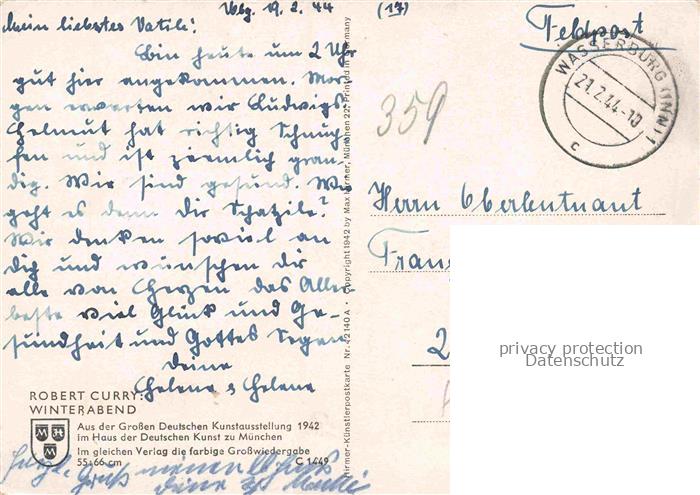 Wbg. 19.2.44
(17)
Mein liebstes Vatile!
Bin heute um 2 Uhr
gut hier angekommen. Mor-
gen erwarten wir Ludwigs
Helmut hat richtig Schnup-
fen und ist ziemlich gran-
dig. Wir sind gesund. Wie
geht es denn Dir Schatzile?
Wir denken soviel an
Dich und wünschen Dir
alle von Herzen das Aller-
beste viel Glück und Ge-
sundheit und Gottes Segen
Deine
Helene
Feldpost
WASSERBURG (INN) 1
21.2.44-10
c
359
Herrn Oberleutnant
Franz
2
privacy protection
Datenschutz
Hirmer-Künstlerpostkarte Nr. 42140 A · Copyright 1942 by Max Hirmer, München 22. Printed in Germany
ROBERT CURRY:
WINTERABEND
Aus der Großen Deutschen Kunstausstellung 1942
im Haus der Deutschen Kunst zu München
Im gleichen Verlag die farbige Großwiedergabe
55×66 cm C 1449
M H M
Gruß
Deine